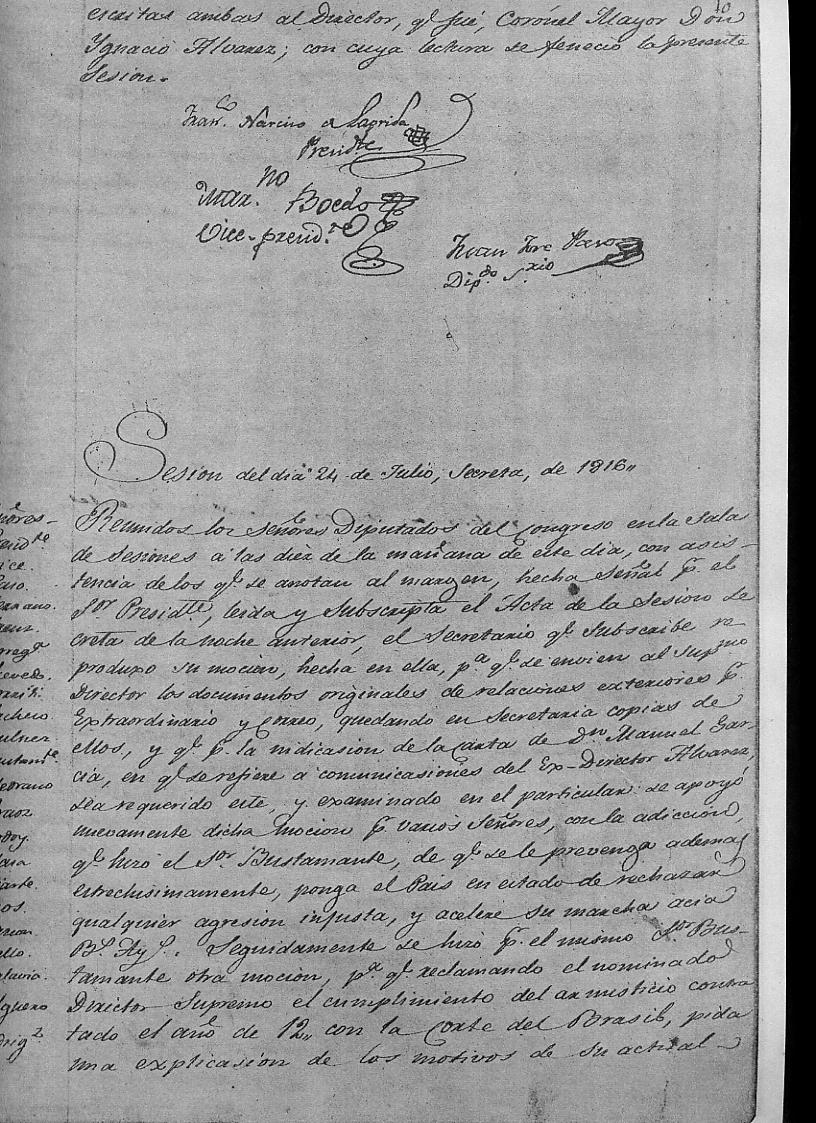 escritas ambas al Director, q.e fué, Coronel Mayor Dōn
Ygnacio Alvarez; con cuya lectura se feneció la presente
Sesion.
Fran.co Narciso de Laprida
Presid.te
Mar.no Boedo
Vice-presid.te
Juan José Paso
Dip.do S.rio
Sesion del dia 24 de Julio, Secreta, de 1816,,
Reunidos los Señores Diputados del Congreso en la Sala
de Sesiones á las diez de la mañana de este dia, con asis-
tencia de los q.e se anotan al margen, hecha Señal p.r el
S.or Presid.te, leida y Subscripta el Acta de la Sesion Se
creta de la noche anterior, el Secretario q.e Subscribe re
produxo su mocion, hecha en ella, p.a q.e se envien al Sup.mo
Director los documentos originales de relaciones exteriores p.r
Extraordinario y Correo, quedando en Secretaria copias de
ellos, y q.e p.r la indicacion de la Carta de D.n Manuel Gar-
cia, en q.e se refiere a comunicaciones del Ex-Director Alvarez,
sea requerido este, y examinado en el particular: se apoyó
nuevamente dicha mocion p.r varios Señores, con la adiccion,
q.e hizo el S.or Bustamante, de q.e se le prevenga ademas
estrechisimamente, ponga el Pais en estado de rechazar
qualquier agresion injusta, y acelere su marcha acia
B.s Ay.s. Seguidamente se hizo p.r el mismo S.or Bus-
tamante otra mocion, p.a q.e reclamando el nominado
Director Supremo el cumplimiento del armisticio contra
tado el año de 12,, con la Corte del Brasil, pida
una explicasion de los motivos de su actual